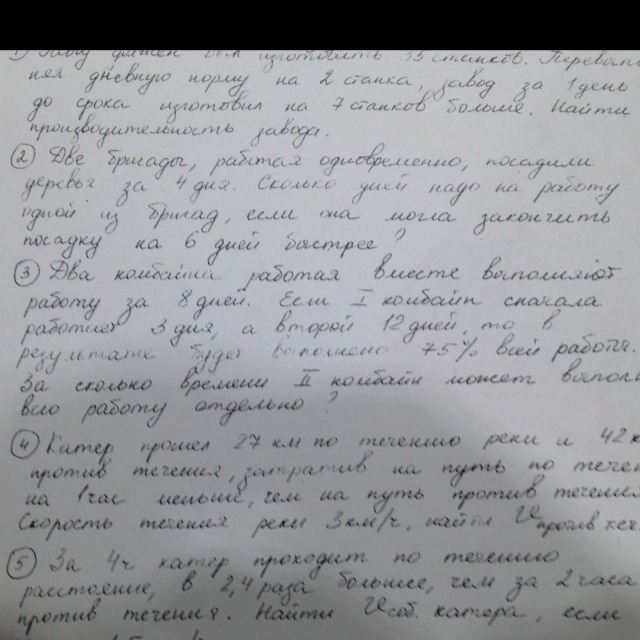 1) Завод должен был изготовить 35 станков. Перевыпол
няя дневную норму на 2 станка, завод за 1 день
до срока изготовил на 7 станков больше. Найти
производительность завода.
② Две бригады, работая одновременно, посадили
деревья за 4 дня. Сколько дней надо на работу
одной из бригад, если она могла закончить
посадку на 6 дней быстрее?
③ Два комбайна работая вместе выполняют
работу за 8 дней. Если I комбайн сначала
работает 3 дня, а второй 12 дней, то в
результате будет выполнено 75% всей работы.
За сколько времени II комбайн может выпол
всю работу отдельно?
④ Катер прошел 27 км по течению реки и 42 к
против течения, затратив на путь по течен
на 1 час меньше, чем на путь против течения
Скорость течения реки 3 км/ч, найти V против теч
⑤ За 4ч катер проходит по течению
расстояние, в 2,4 раза большее, чем за 2 часа
против течения. Найти V соб. катера, если